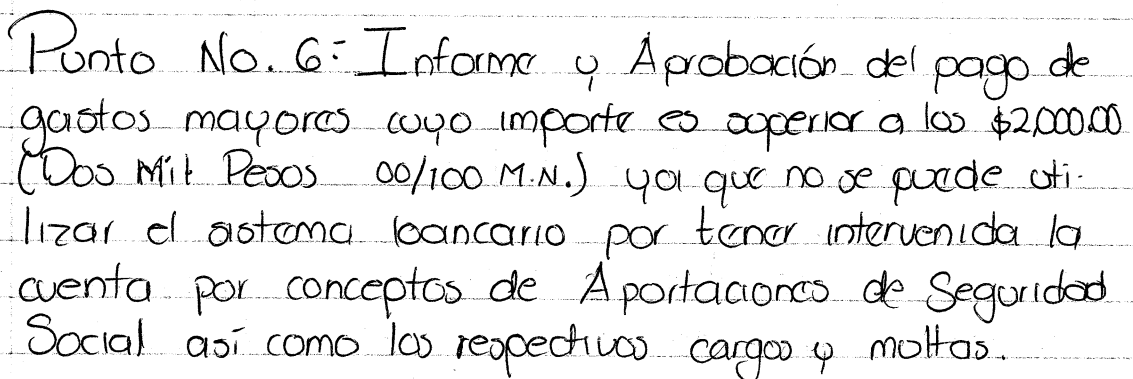 Punto No. 6: Informe y Aprobación del pago de
gastos mayores cuyo importe es superior a los $2,000.00
(Dos Mil Pesos 00/100 M.N.) ya que no se puede uti-
lizar el sistema bancario por tener intervenida la
cuenta por conceptos de Aportaciones de Seguridad
Social así como los respectivos cargos y multas.